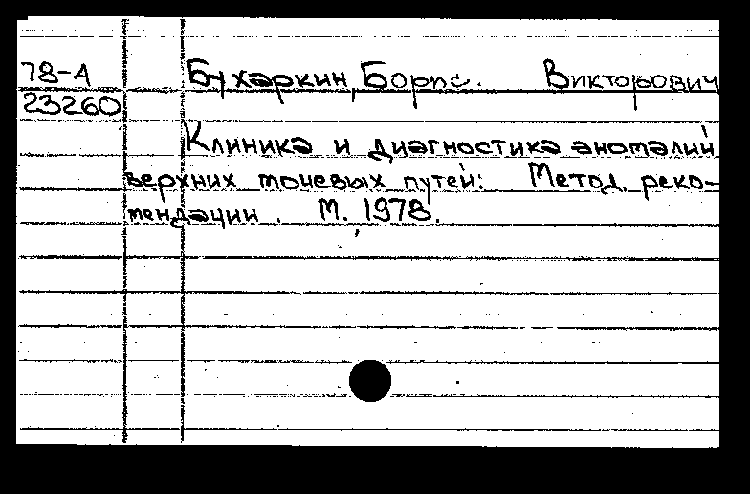 78-4 Бухаркин, Борис Викторович
23260
Клиника и диагностика аномалий
верхних мочевых путей: Метод. реко-
мендации. М. 1978.